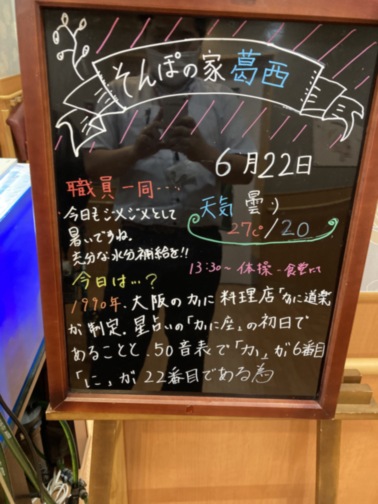 そんぽの家 葛西
6月22日
職員一同・・・・
今日もジメジメとして
暑いですね。
充分な水分補給を!!
天気 曇:)
27℃/20
13:30~ 体操 - 食堂にて
今日は…?
1990年、大阪のかに料理店「かに道楽」
が制定。星占いの「かに座」の初日で
あることと、50音表で「か」が6番目
「に」が22番目である為